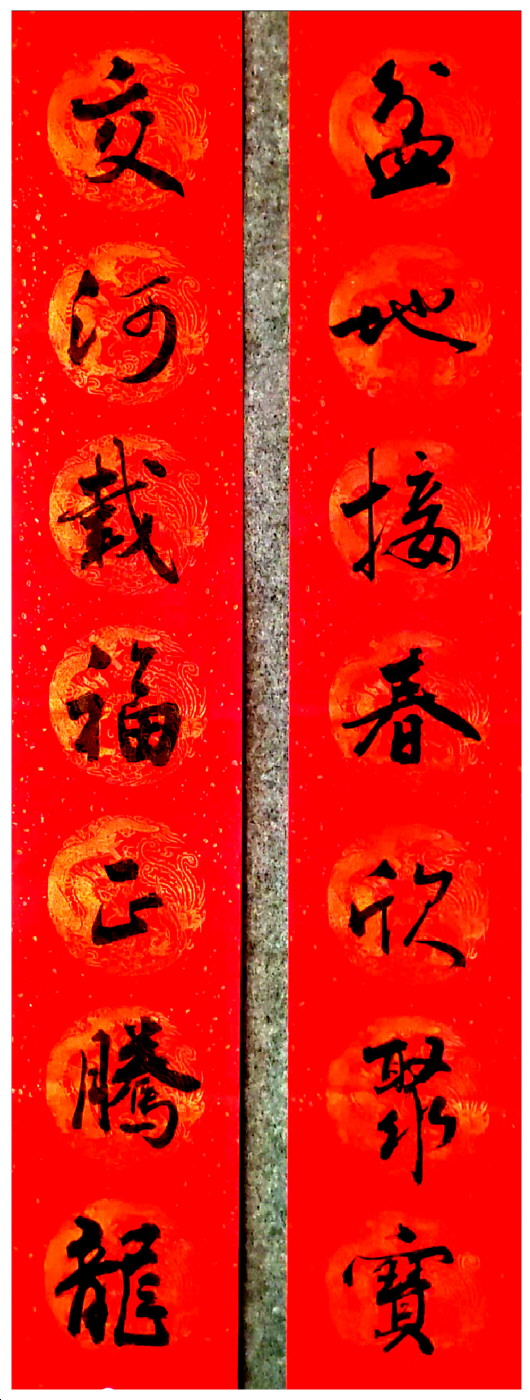 盆地接春欣聚寶
交河載福正騰龍